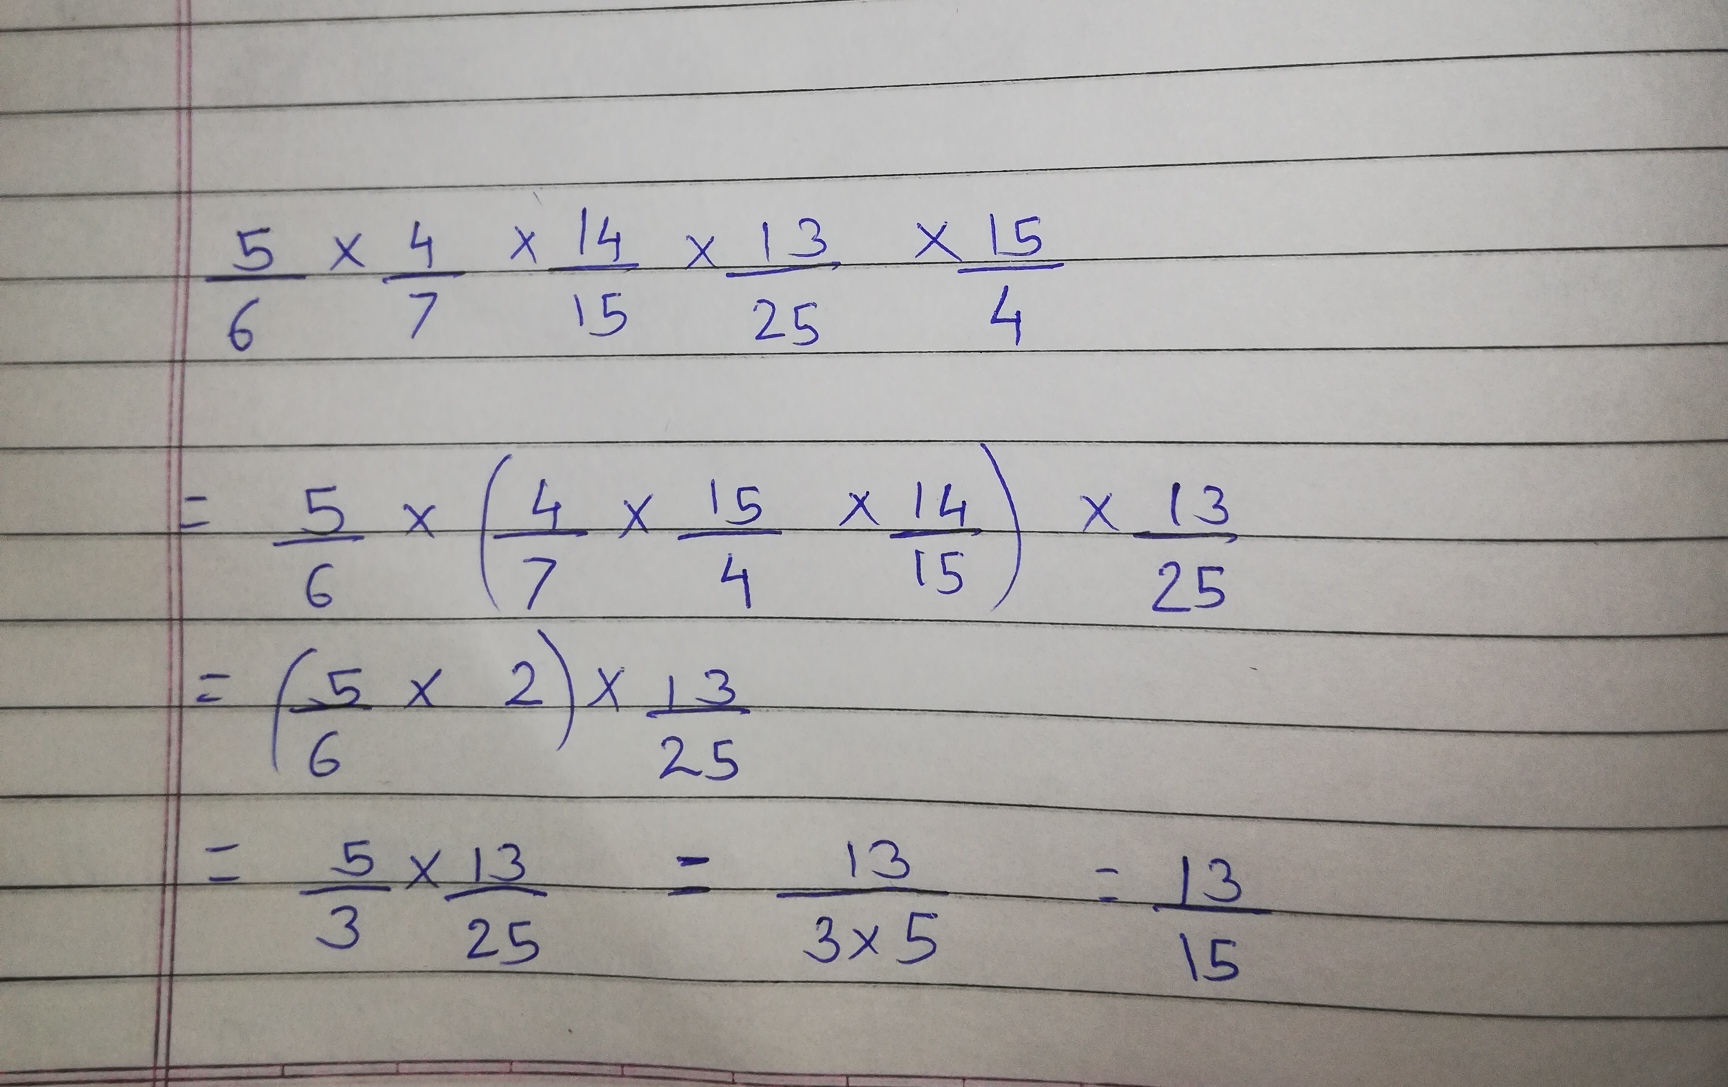 5/6 × 4/7 × 14/15 × 13/25 × 15/4
= 5/6 × (4/7 × 15/4 × 14/15) × 13/25
= (5/6 × 2) × 13/25
= 5/3 × 13/25 = 13/(3×5) = 13/15